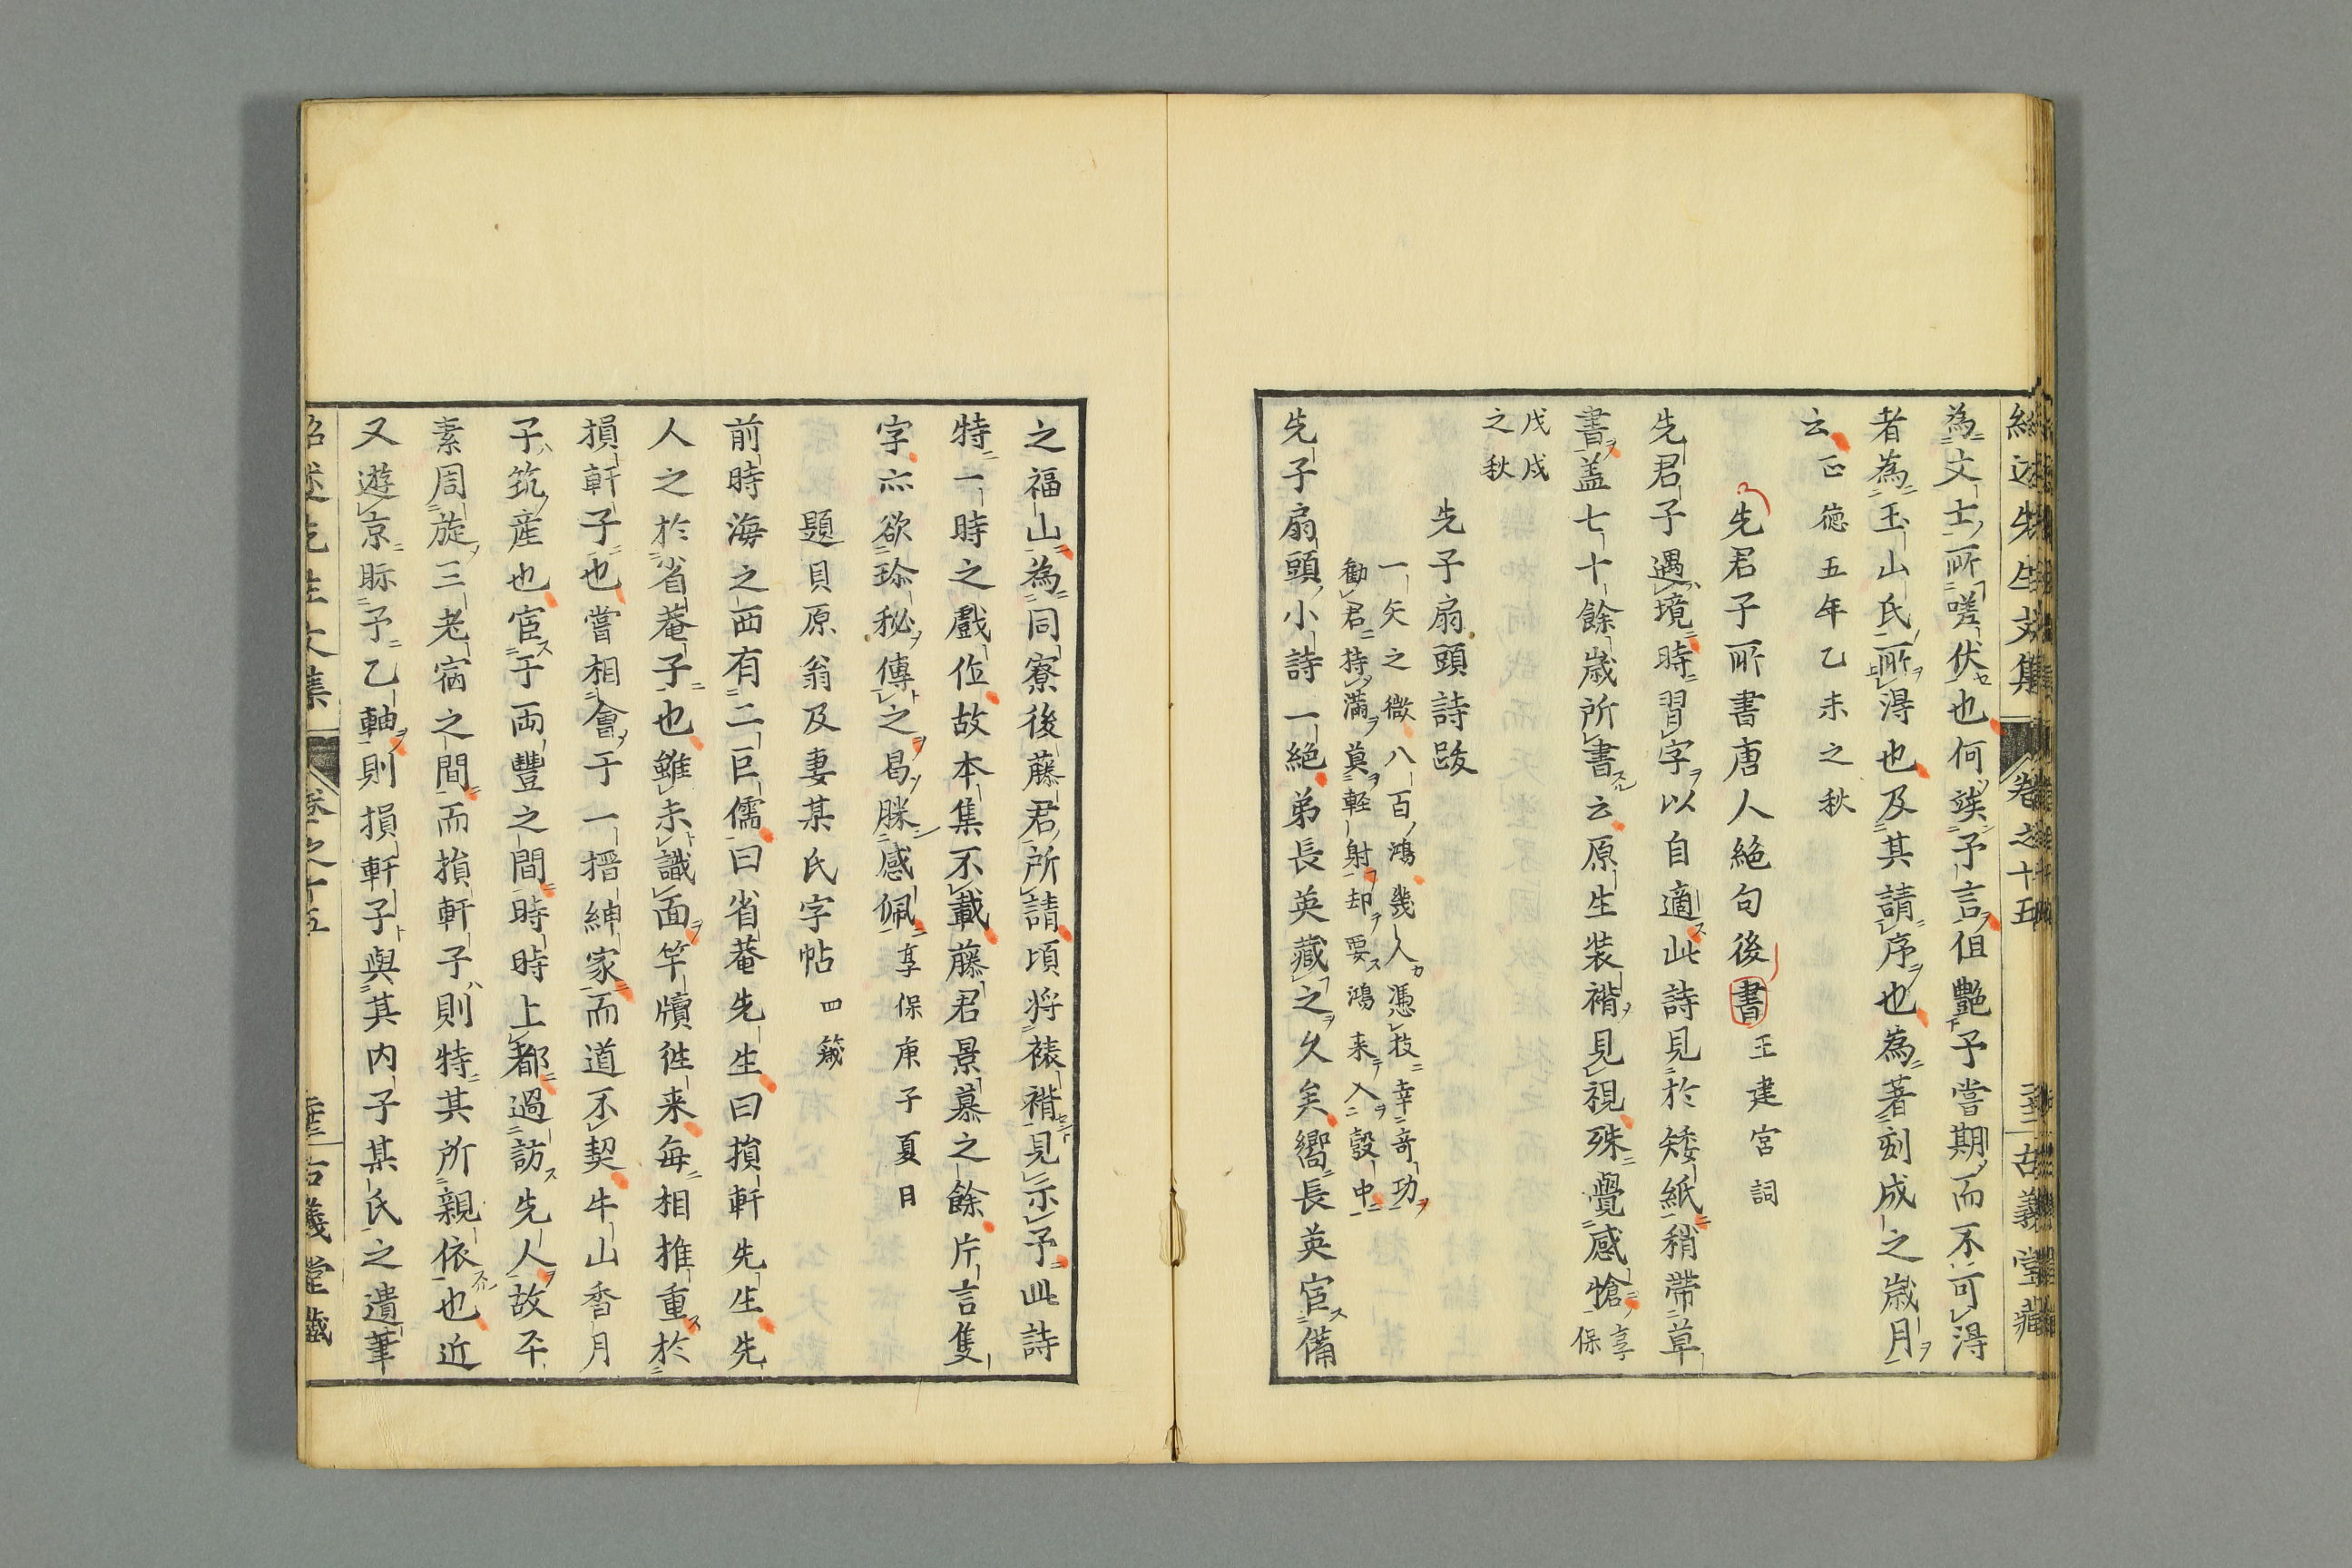 紹述先生文集 卷之十五 古義堂藏
為文士所嗟伏也何誒予言但艶予嘗期而不可得
者為玉山氏所得也及其請序也為著刻成之歲月
云 正德五年乙未之秋
先君子所書唐人絶句後書 王建宮詞
先君子遇境時習字以自適此詩見於矮紙稍帶草
書盖七十餘歲所書云原生装褙見視殊覺感愴 享保
戊戌之秋
先子扇頭詩跋
一矢之微八百鴻幾人憑技幸奇功
勧君持滿莫軽射却要鴻来入彀中
先子扇頭小詩一絶弟長英藏之久矣嚮長英宦備
之福山為同寮後藤君所請頃将裱褙見示予此詩
特一時之戯作故本集不載藤君景慕之餘片言隻
字亦欲珍秘傳之曷勝感佩 享保庚子夏日
題貝原翁及妻某氏字帖 四箴
前時海之西有二巨儒曰省菴先生曰損軒先生先
人之於省菴子也雖未識面竿牘徃来毎相推重於
損軒子也嘗相會于一搢紳家而道不契牛山香月
子筑産也宦于両豐之間時時上都過訪先人故平
素周旋三老宿之間而損軒子則特其所親依也近
又遊京眎予乙軸則損軒子與其内子某氏之遺筆
紹述先生文集 卷之十五 古義堂藏